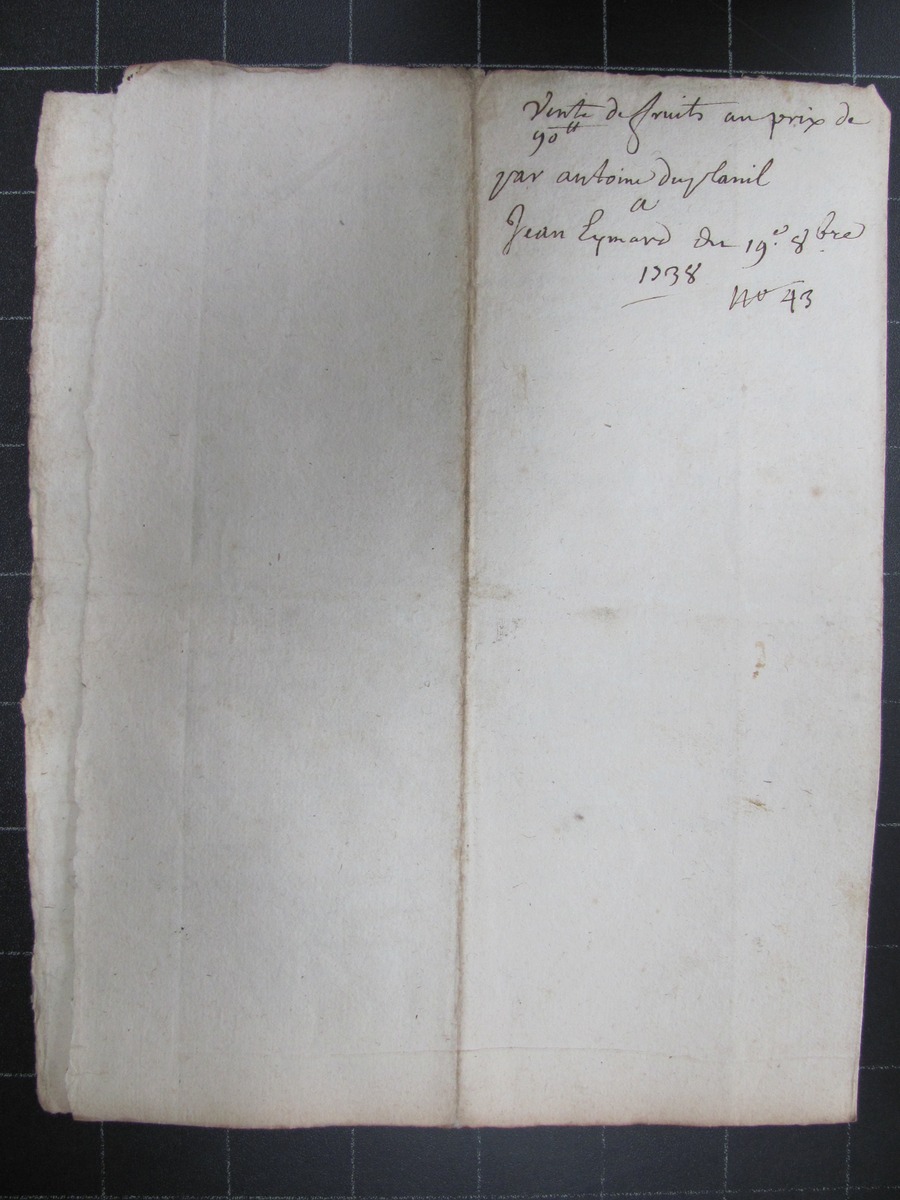 Vente de ffruits au prix de
90tt
par antoine duplanil
a
Jean Eymard du 19e 8bre
1738
No 43